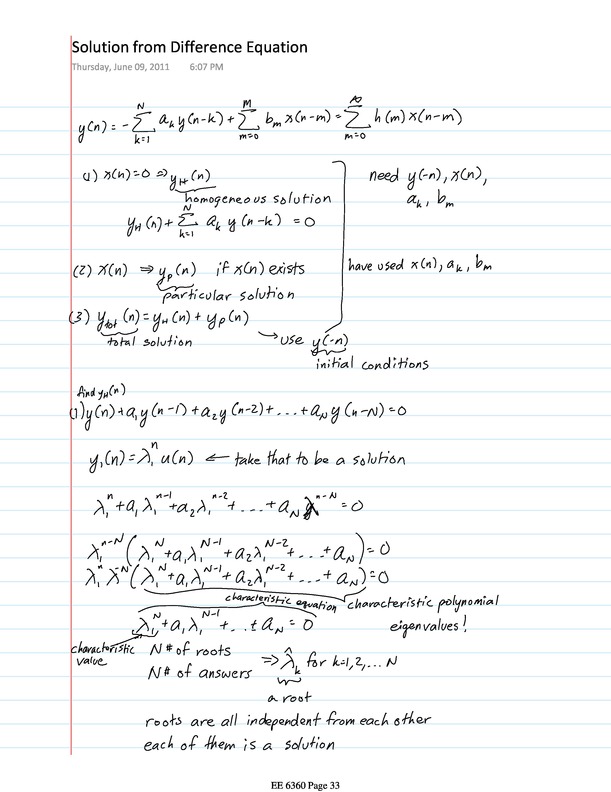 Solution from Difference Equation
Thursday, June 09, 2011 6:07 PM
y(n) = -∑_{k=1}^{N} a_k y(n-k) + ∑_{m=0}^{M} b_m x(n-m) = ∑_{m=0}^{∞} h(m) x(n-m)
(1) x(n)=0 ⇒ y_H(n)
homogeneous solution
need y(-n), x(n),
a_k, b_m
y_H(n) + ∑_{k=1}^{N} a_k y(n-k) = 0
(2) x(n) ⇒ y_p(n) if x(n) exists
have used x(n), a_k, b_m
particular solution
(3) y_tot(n) = y_H(n) + y_p(n)
total solution
→ use y(-n)
initial conditions
find y_H(n)
(1) y(n) + a_1 y(n-1) + a_2 y(n-2) + ... + a_N y(n-N) = 0
y_1(n) = λ_1^n u(n) ← take that to be a solution
λ_1^n + a_1 λ_1^{n-1} + a_2 λ_1^{n-2} + ... + a_N λ^{n-N} = 0
λ_1^{n-N} (λ_1^N + a_1 λ_1^{N-1} + a_2 λ_1^{N-2} + ... + a_N) = 0
λ_1^n λ^{-N} (λ_1^N + a_1 λ_1^{N-1} + a_2 λ_1^{N-2} + ... + a_N) = 0
characteristic equation characteristic polynomial
λ_1^N + a_1 λ_1^{N-1} + .. + a_N = 0
eigenvalues!
characteristic value
N # of roots
N # of answers
⇒ λ̂_k for k=1,2,... N
a root
roots are all independent from each other
each of them is a solution
EE 6360 Page 33